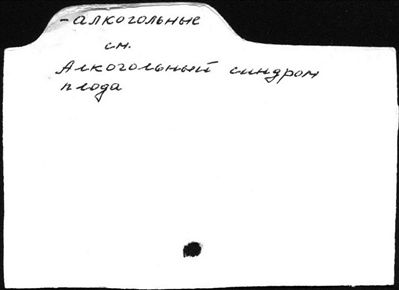 -алкогольные
см.
Алкогольный синдром
плода